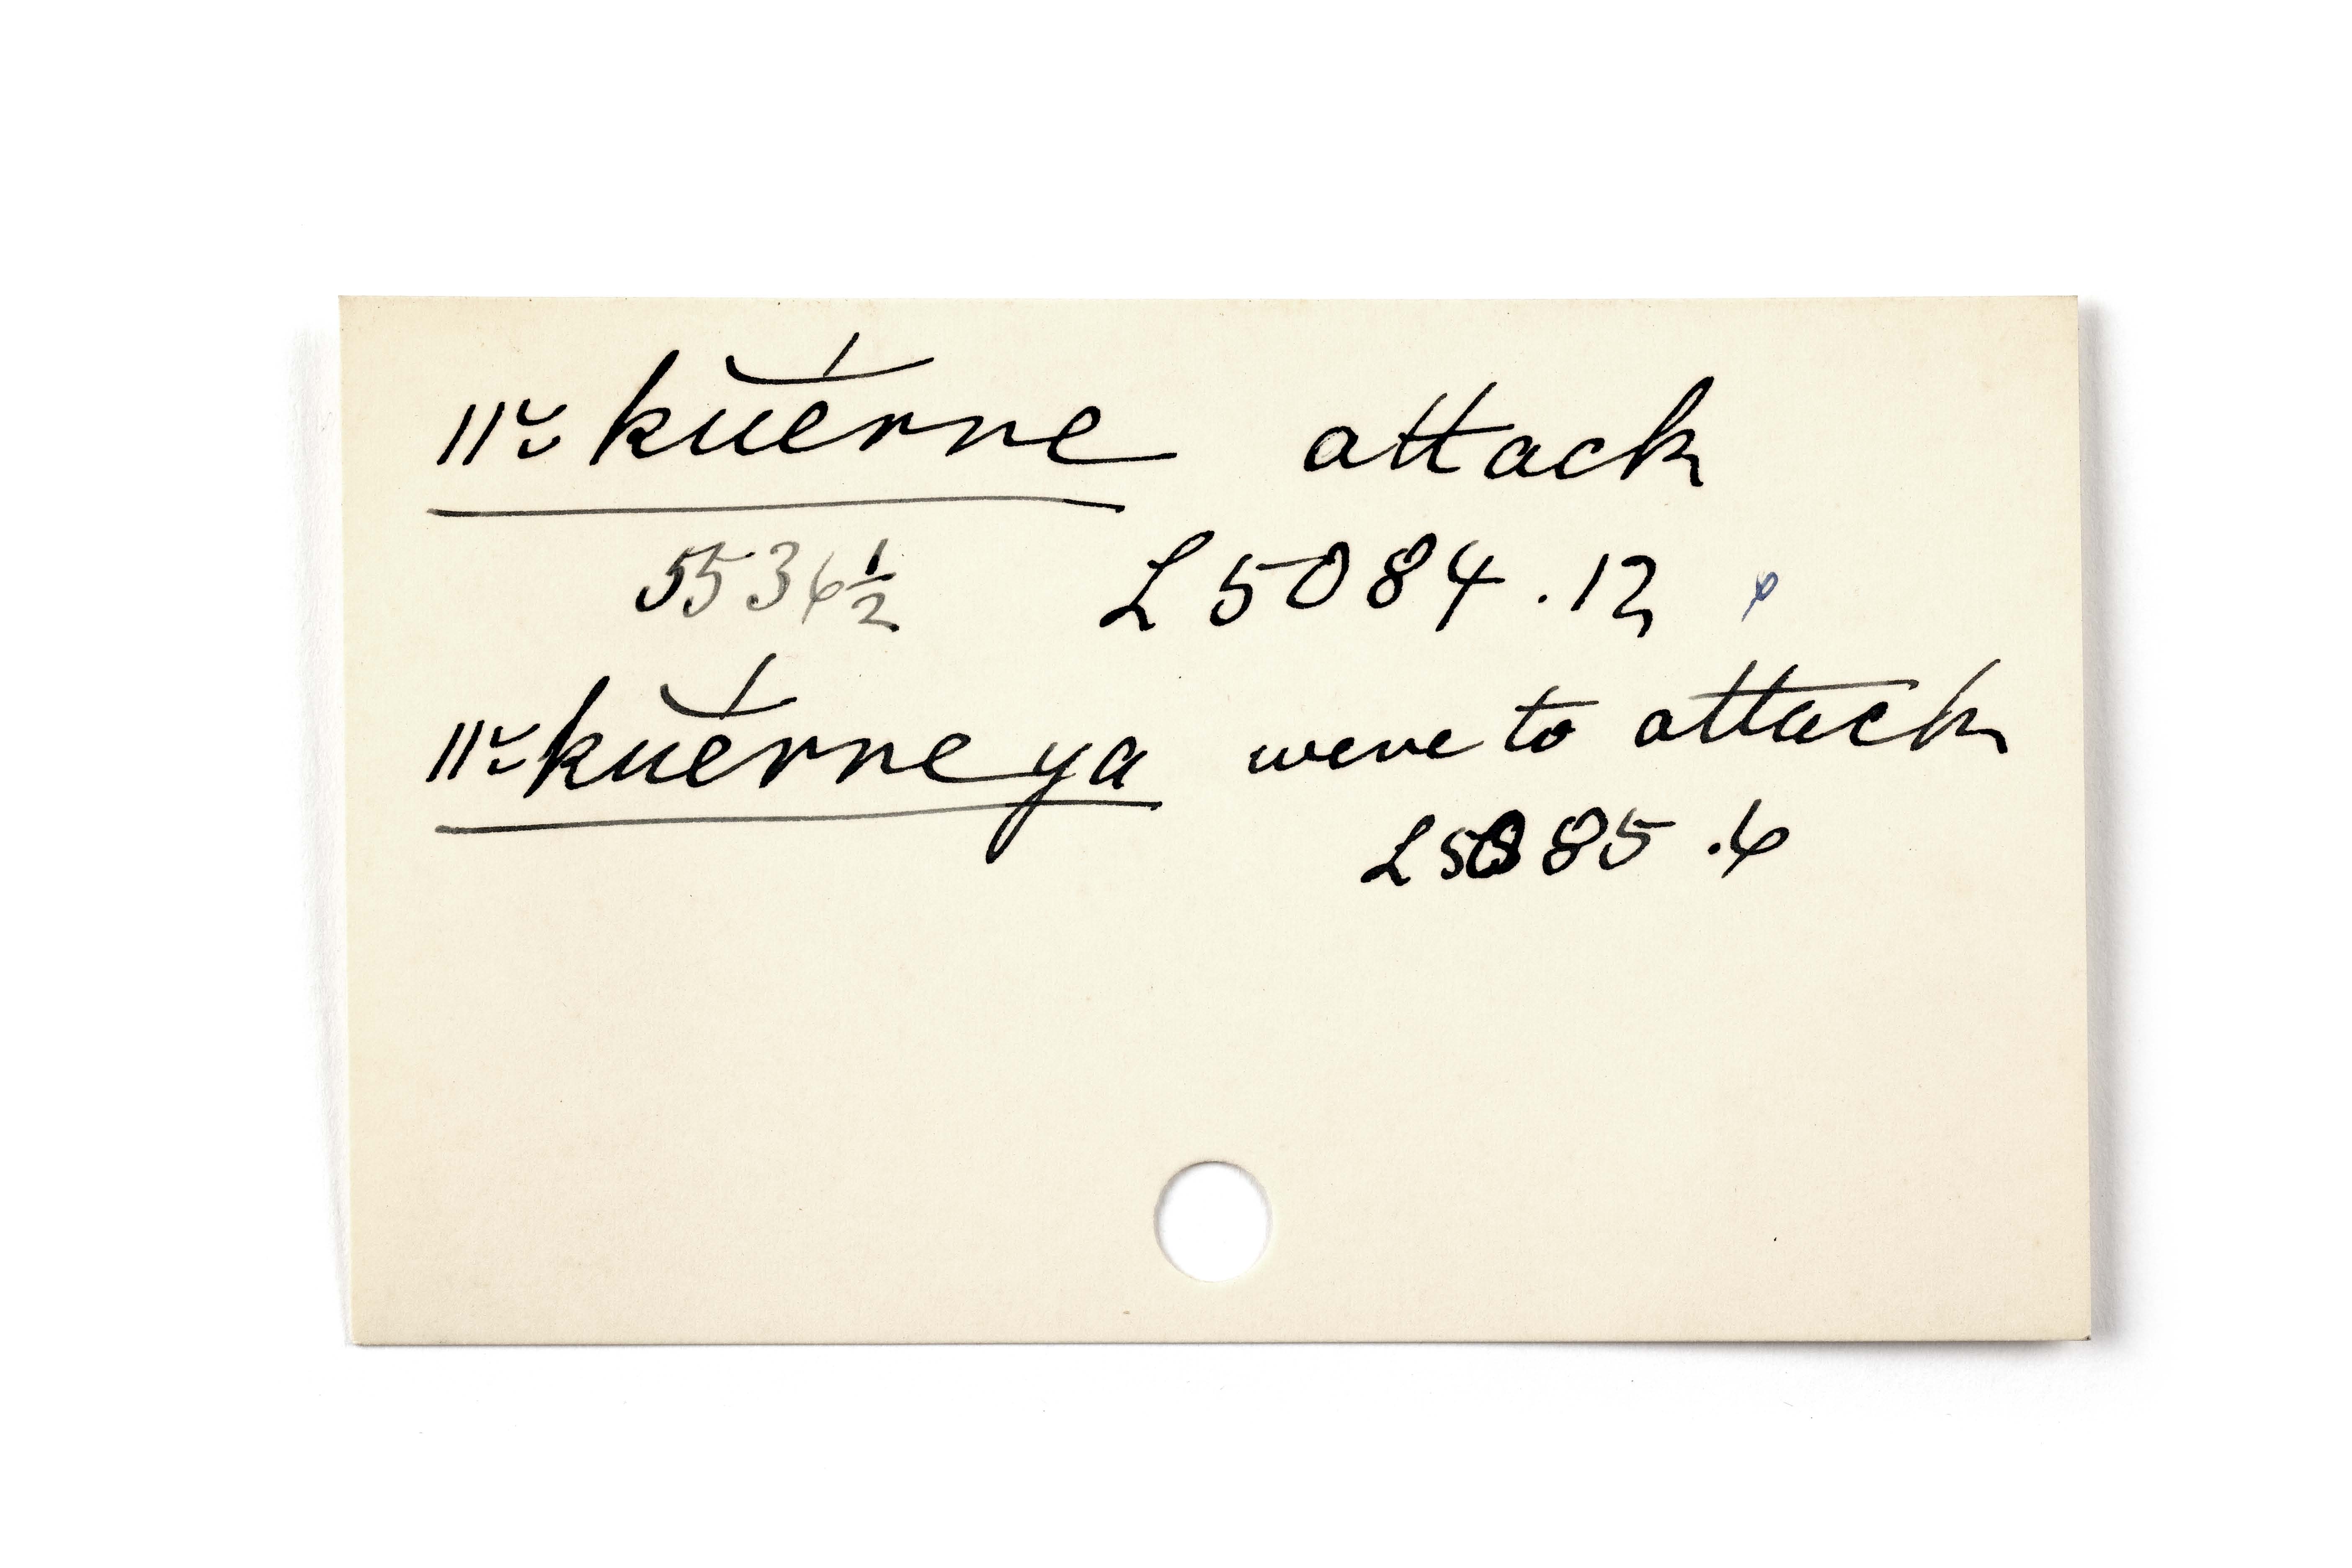 ||ꭋkuĕ́rne attack
5536½ L5084.12
||ꭋkuĕ́rneya were to attack
L5085.6